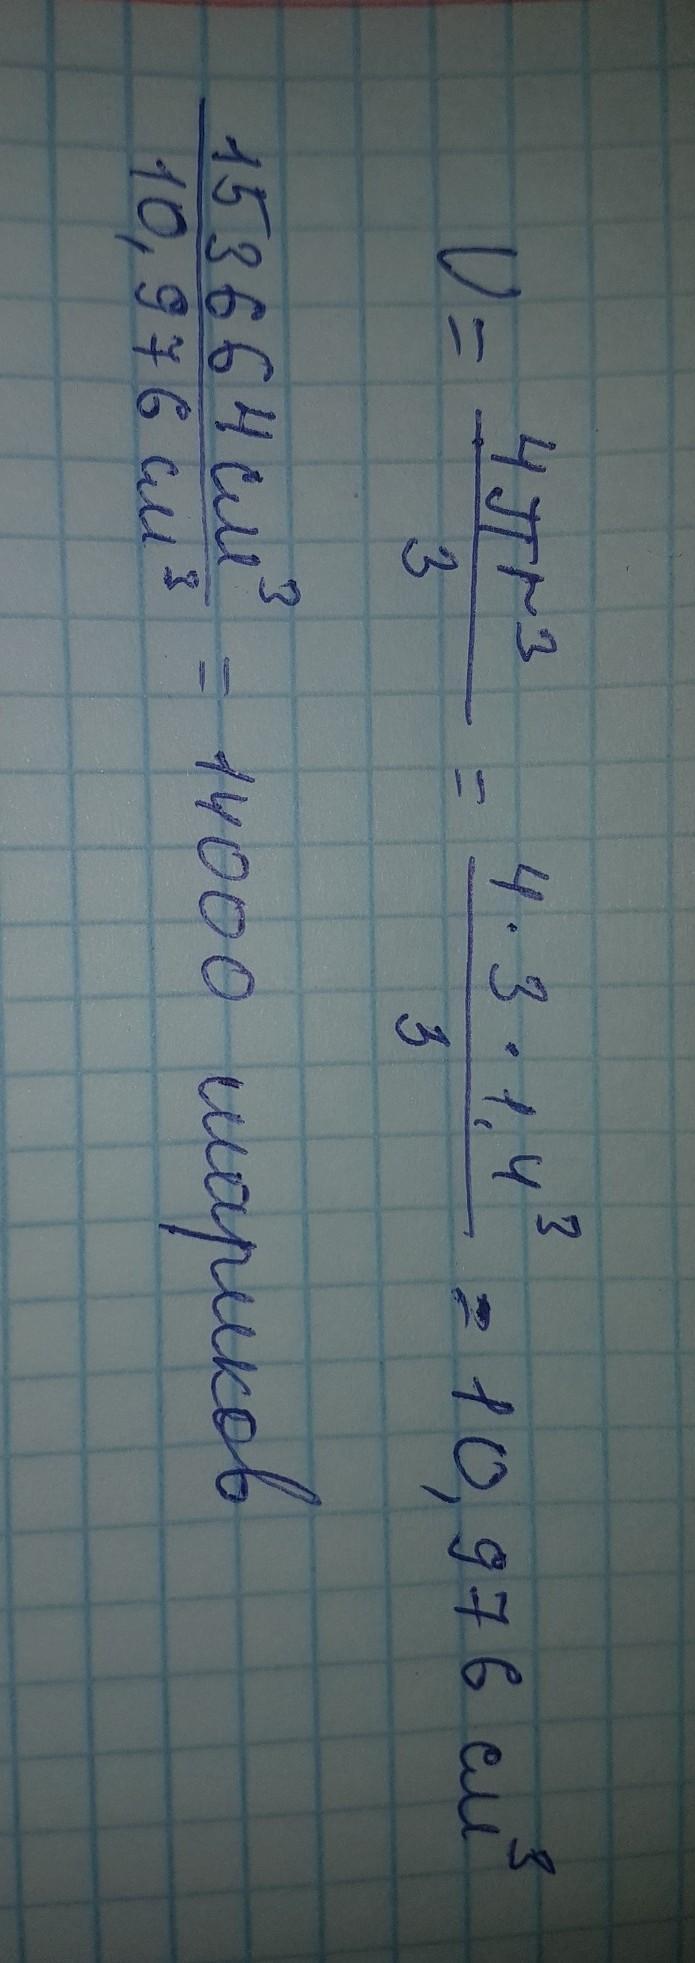 V = 4πr³/3 = 4·3·1,4³/3 = 10,976 см³
153664 см³/10,976 см³ = 14000 шариков